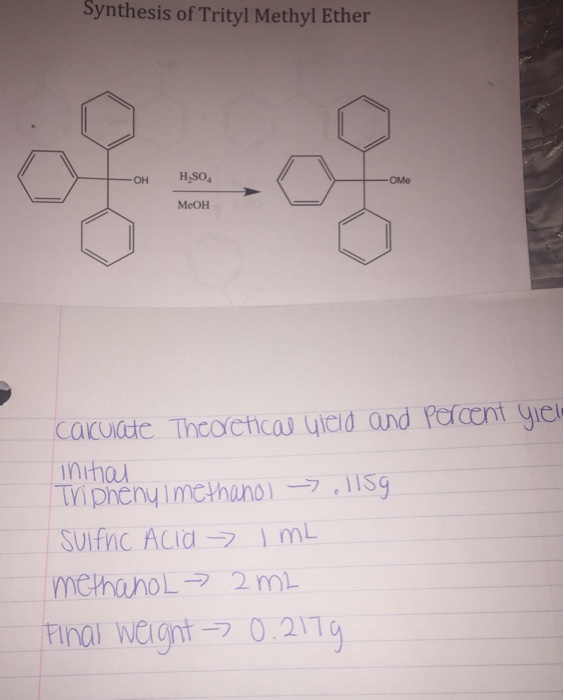 Synthesis of Trityl Methyl Ether
OH
H₂SO₄
MeOH
OMe
Calculate Theoretical yield and Percent yiel
initial
Triphenylmethanol → .115g
Sulfric Acid → 1 mL
methanol → 2 mL
Final Weight → 0.217g